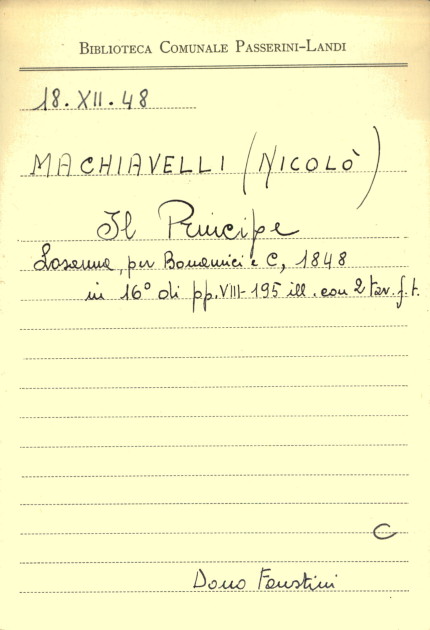 BIBLIOTECA COMUNALE PASSERINI-LANDI
18.XII.48
MACHIAVELLI (NICOLÒ)
Il Principe
Losanna, per Bonamici e C, 1848
in 16° di pp. VIII-195 ill. con 2 tav. f.t.
C
Dono Faustini